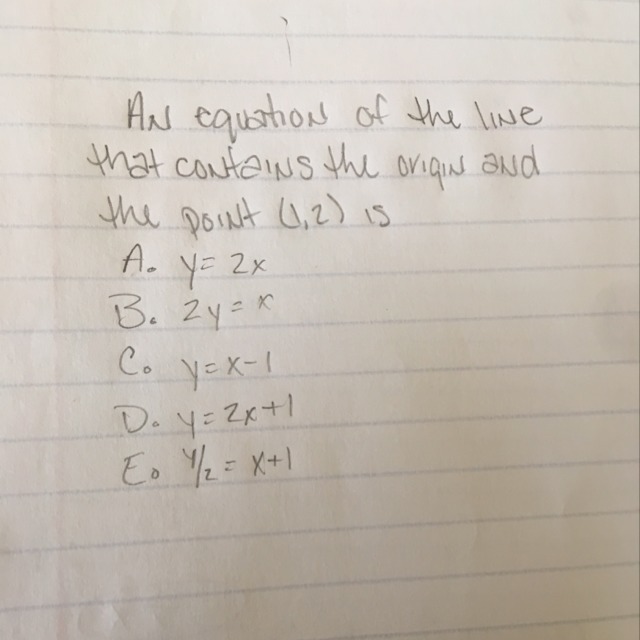 AN equation of the line
that contains the origin and
the point (1,2) is
A. y = 2x
B. 2y = x
C. y = x - 1
D. y = 2x + 1
E. y/2 = x + 1